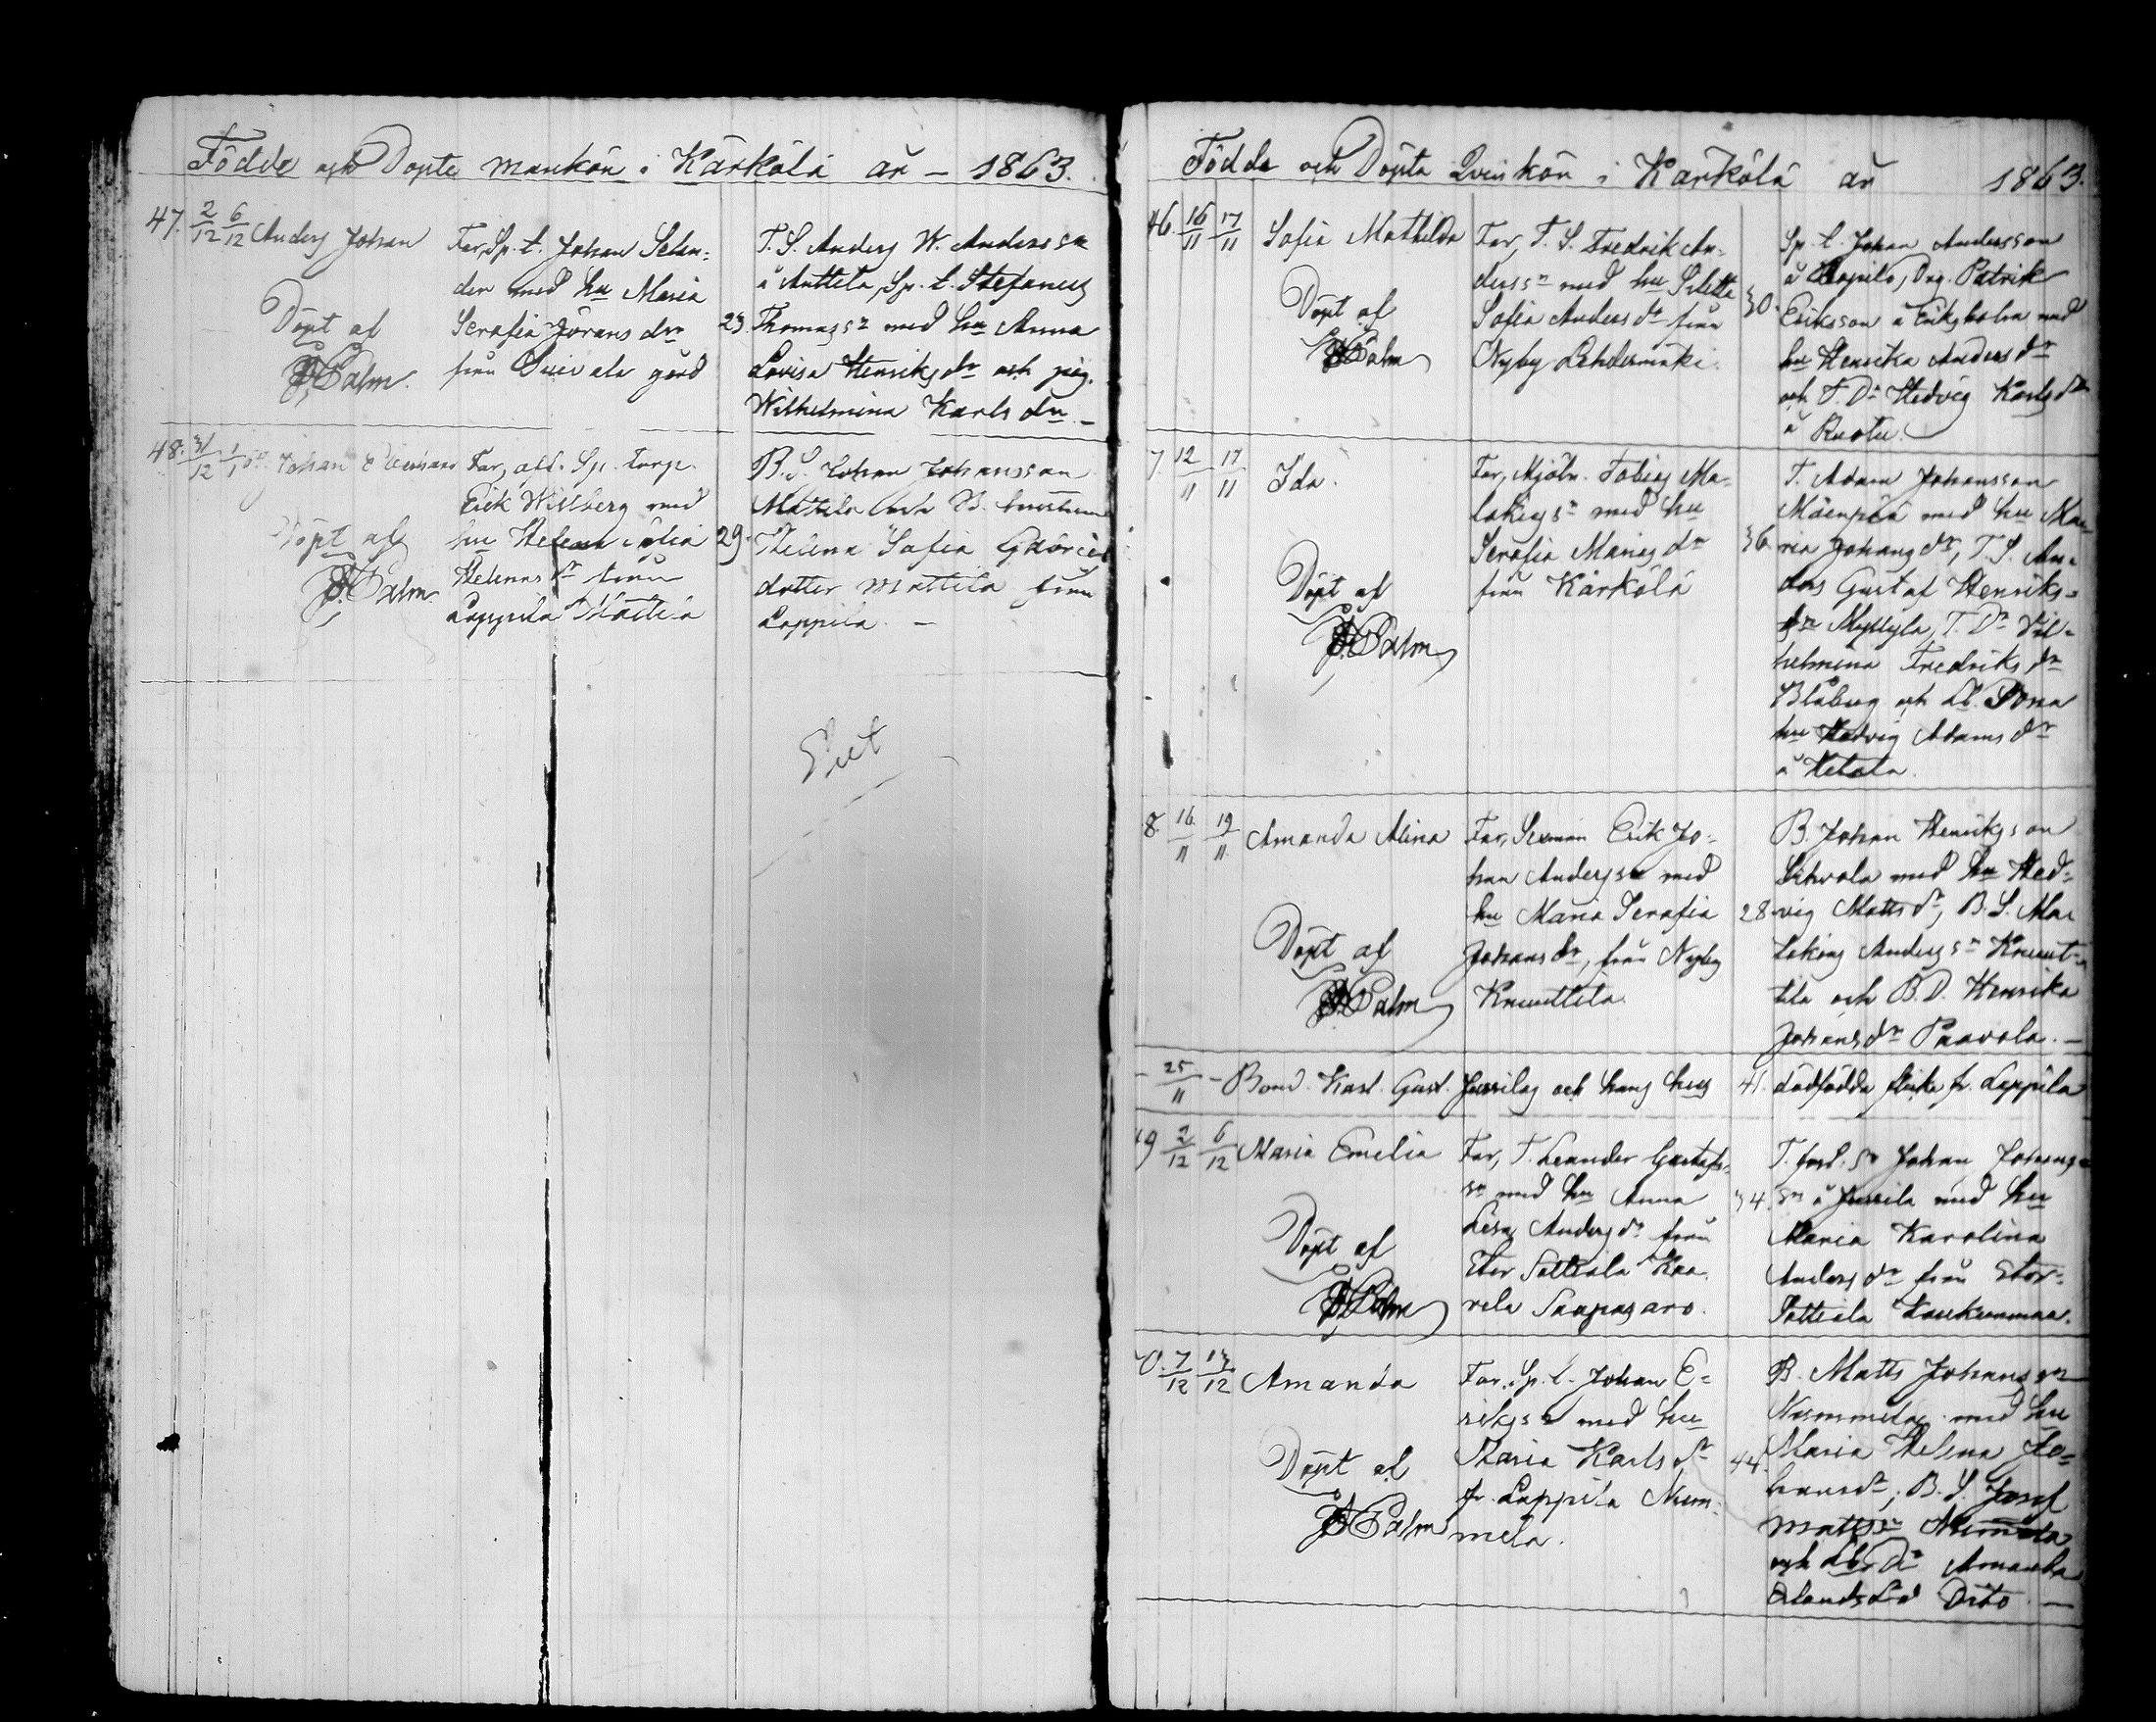 Födde och Döpte mankön i Kärkölä år – 1863.
47. 2/12 6/12 Anders Johan
Döpt af
Palm.
Far, Sp. t. Johan Selan=
der med hu Maria
Serafia Jörans dr
från gård
23.
T. S. Anders W. Andersson
å Anttila, Sp. t. Stefanus
Thomass n med hu Anna
Lovisa Henriks dr och pig.
Wilhelmina Karls dr. –
48. 31/12 1/1 Johan
Döpt af
Palm.
Far, Sp. torp.
Erik Willberg med
hu Helena Sofia
Helenas dr från
Lappila Mattila
29.
B. S. Johan Johansson
Mattila och B.
Helena Sofia
dotter Mattila från
Lappila. –
Födde och Döpta Qvinkön i Kärkölä år 1863.
46. 16/11 17/11 Sofia Mathilda
Döpt af
Palm
Far, T. S. Fredrik An-
derss n med hu
Sofia Anders dr från
Nyby
30.
Sp. t. Johan Andersson
å Lappila, Drg. Patrik
Eriksson å Eriksholm med
hu Henrika Anders dr
och T. Dr Hedvig Karls dr
å
7. 12/11 17/11 Ida.
Döpt af
Palm
Far, Mjöln. Tobias Ma-
lakias n med hu
Serafia Marias dr
från Kärkölä
36.
T. Adam Johansson
Mäenpää med hu Ma-
ria Johans dr, T. S. An-
ders Gustaf Henriks-
s n Myllylä, T. Dr Vil-
helmina Fredriks dr
Blåberg och
hu Hedvig Adams dr
å Hetola.
8. 16/11 19/11 Amanda Alina
Döpt af
Palm
Far, Sexman Erik Jo-
han Anderss n med
hu Maria Serafia
Johans dr, från Nyby
Knuuttila.
28.
B. Johan Henriksson
Sihvola med hu Hed-
vig Matts dr, B. S. Ma-
lakias Anders s n Knuut-
tila och B. D. Henrika
Johans dr Paavola. –
– 25/11 – Bond. Karl Gust. Jussilas och hans hus 41. dödfödda flicka fr. Lappila
49 2/12 6/12 Maria Emelia
Döpt af
Palm
Far, T. Leander Gustafs-
s n med hu Anna
Lisa Anders dr från
Stor Sattiala Kaa-
rela Saapasaro.
34.
T. Johan Johans-
s n å Jussila med hu
Maria Karolina
Anders dr från Stor-
Sattiala
50. 7/12 13/12 Amanda
Döpt af
Palm
Far, Sp. t. Johan E-
rikss n med hu
Maria Karls dr
fr. Lappila Num-
mela.
44.
B. Matts Johansson
Nummela med hu
Maria Helena Jo-
hans dr, B. S. Josef
Mattss n Nummela
och Amanda
Dito. –